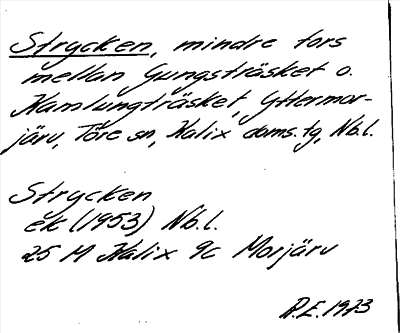 Strycken, mindre fors
mellan Gungsträsket o.
Kamlungträsket, Yttermor-
järv, Töre sn, Kalix doms.tg, Nb.l.
Strycken
ek (1953) Nb.l.
25 M Kalix 9c Morjärv
R.E. 1973